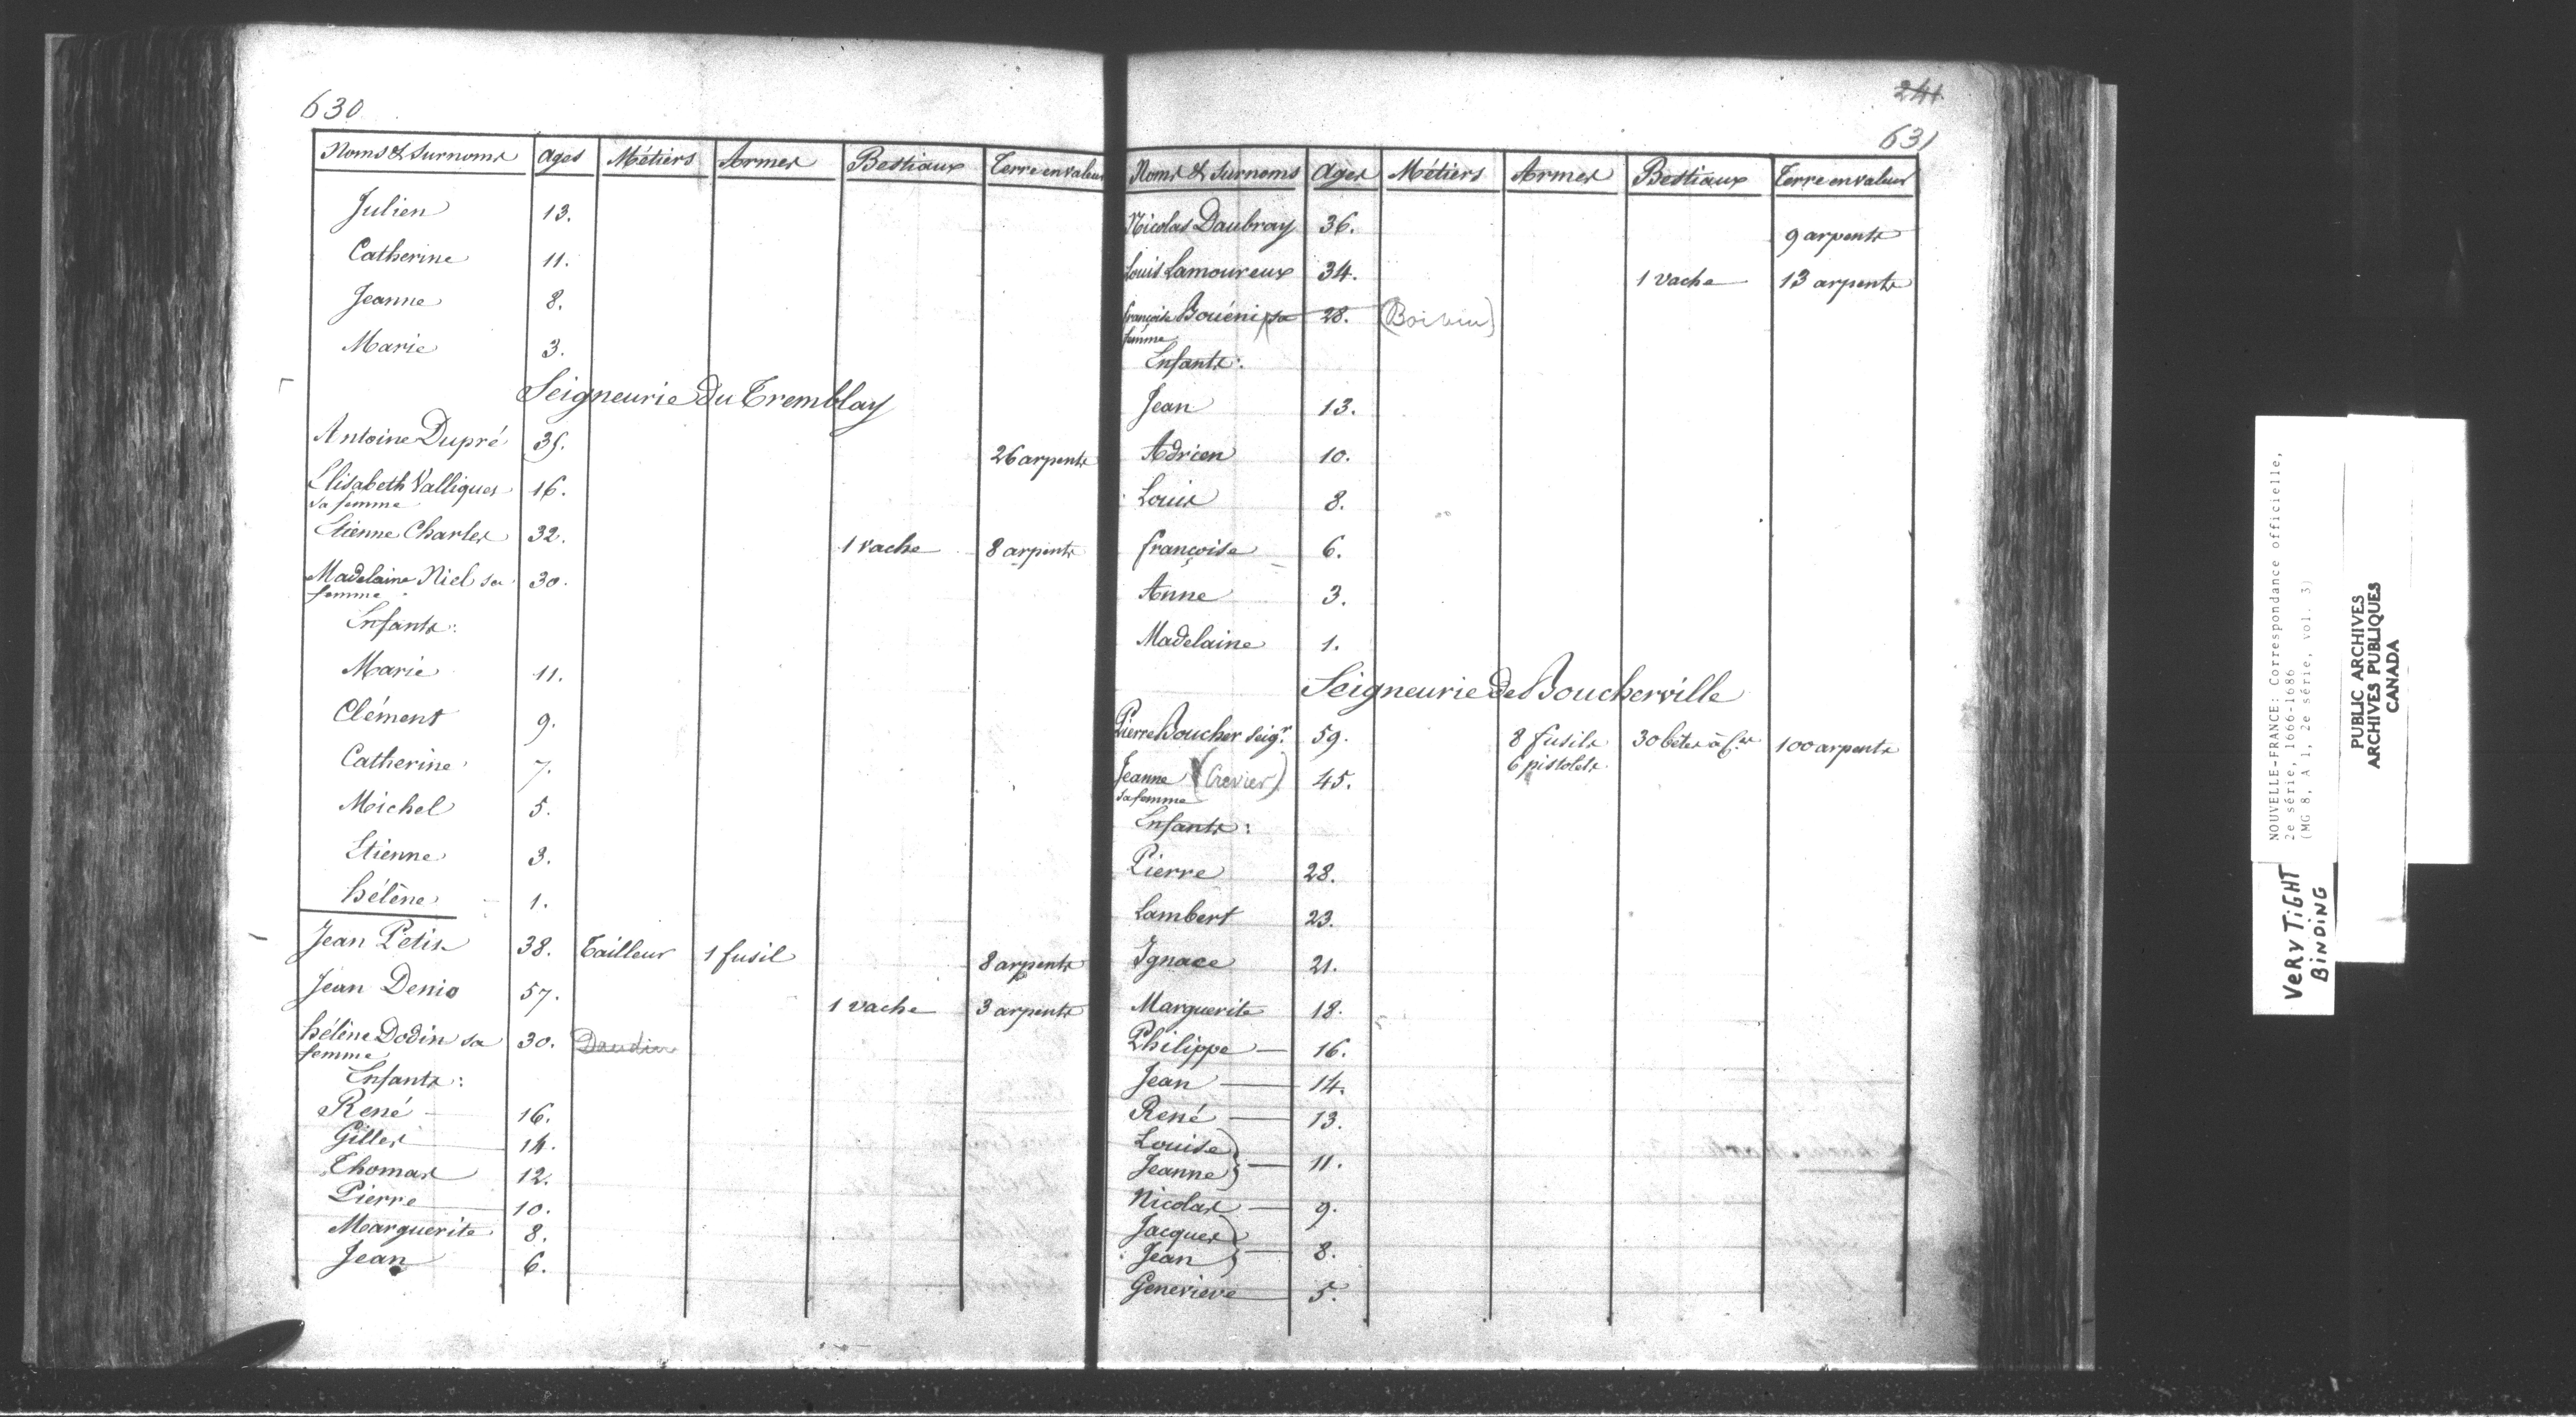 630
Noms & Surnoms Ages Métiers Armes Bestiaux Terre en valeur
Julien 13.
Catherine 11.
Jeanne 8.
Marie 3.
Seigneurie du Tremblay
Antoine Dupré 35. 26 arpents
Elisabeth Valliques 16.
sa femme
Etienne Charles 32. 1 vache 8 arpents
Madelaine Niel sa 30.
femme
Enfants:
Marie 11.
Clément 9.
Catherine 7.
Michel 5.
Etienne 3.
hélène 1.
Jean Petis 38. Tailleur 1 fusil 8 arpents
Jean Denio 57. 1 vache 3 arpents
hélène Dodin sa 30. Daudin
femme
Enfants:
René 16.
Gilles 14.
Thomas 12.
Pierre 10.
Marguerite 8.
Jean 6.
241
631
Noms & Surnoms Ages Métiers Armes Bestiaux Terre en valeur
Nicolas Daubray 36. 9 arpents
Louis Lamoureux 34. 1 vache 13 arpents
françoise Bouéni sa 28. (Boivin)
femme
Enfants:
Jean 13.
Adrien 10.
Louis 8.
françoise 6.
Anne 3.
Madelaine 1.
Seigneurie de Boucherville
Pierre Boucher Seigr. 59. 8 fusils 30 bêtes à 100 arpents
6 pistolets
Jeanne (Crevier) 45.
sa femme
Enfants:
Pierre 28.
Lambert 23.
Ignace 21.
Marguerite 18.
Philippe — 16.
Jean — 14.
René — 13.
Louise
Jeanne } — 11.
Nicolas — 9.
Jacques
Jean } — 8.
Genevieve 5.
NOUVELLE-FRANCE: Correspondance officielle,
2e série, 1666-1686
(MG 8, A 1, 2e série, vol. 3)
PUBLIC ARCHIVES
ARCHIVES PUBLIQUES
CANADA
VERY TiGHT
BiNDiNG